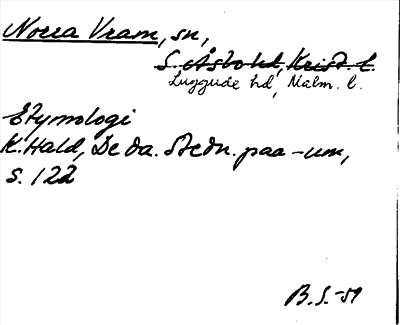 Norra Vram, sn,
S. Åsbo hd, Krist. l.
Luggude hd, Malm. l.
Etymologi
K. Hald, De da. stedn. paa -um,
s. 122
B.S. -59